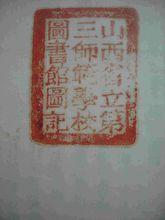 山西省立第
三師範學校
圖書館圖記